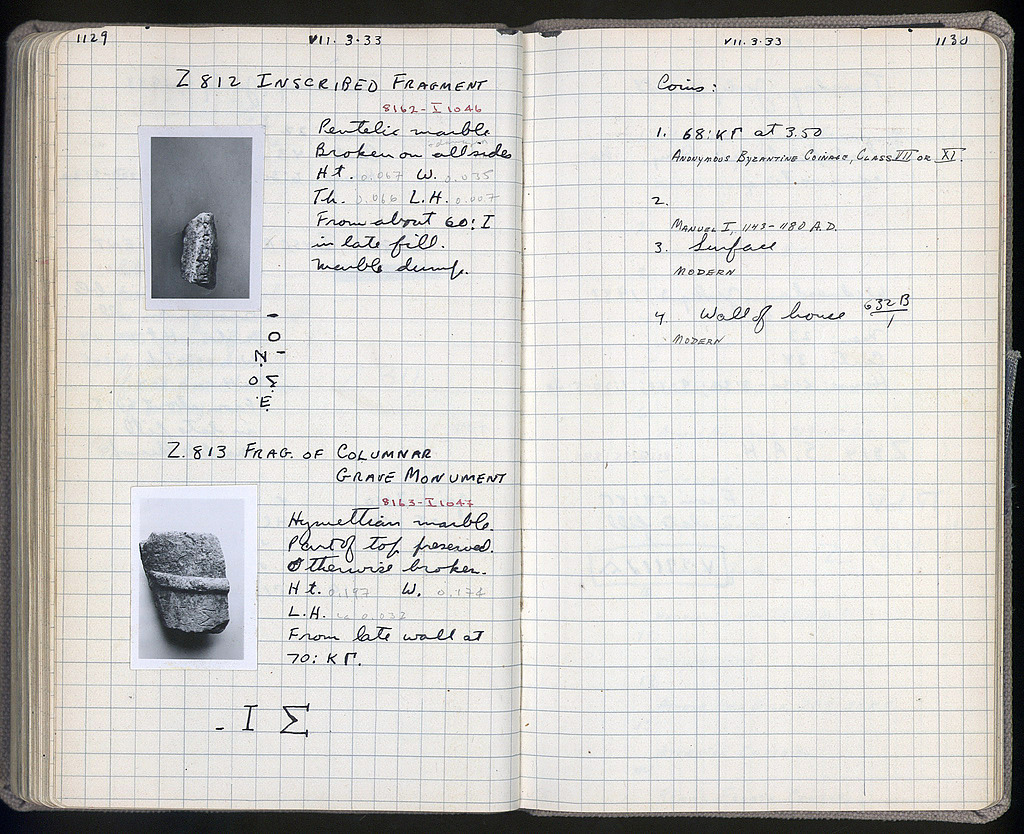 1129
VII. 3.33
Z 812 INSCRIBED FRAGMENT
8162 - I 1046
Pentelic marble
Broken on all sides
Ht. 0.067 W. 0.035
Th. 0.066 L.H. 0.007
From about 60: I
in late fill.
Marble dump.
Z. 813 FRAG. OF COLUMNAR
GRAVE MONUMENT
8163 - I 1047
Hymettian marble.
Part of top preserved.
Otherwise broken.
Ht. 0.197 W. 0.174
L.H. 0.032
From late wall at
70: ΚΓ.
- Ι Σ
VII. 3.33
1130
Coins:
1. 68: ΚΓ at 3.50
ANONYMOUS BYZANTINE COINAGE, CLASS VII OR XI.
2.
MANUEL I, 1143-1180 A.D.
3. Surface
MODERN
4. Wall of house 632 B/1
MODERN